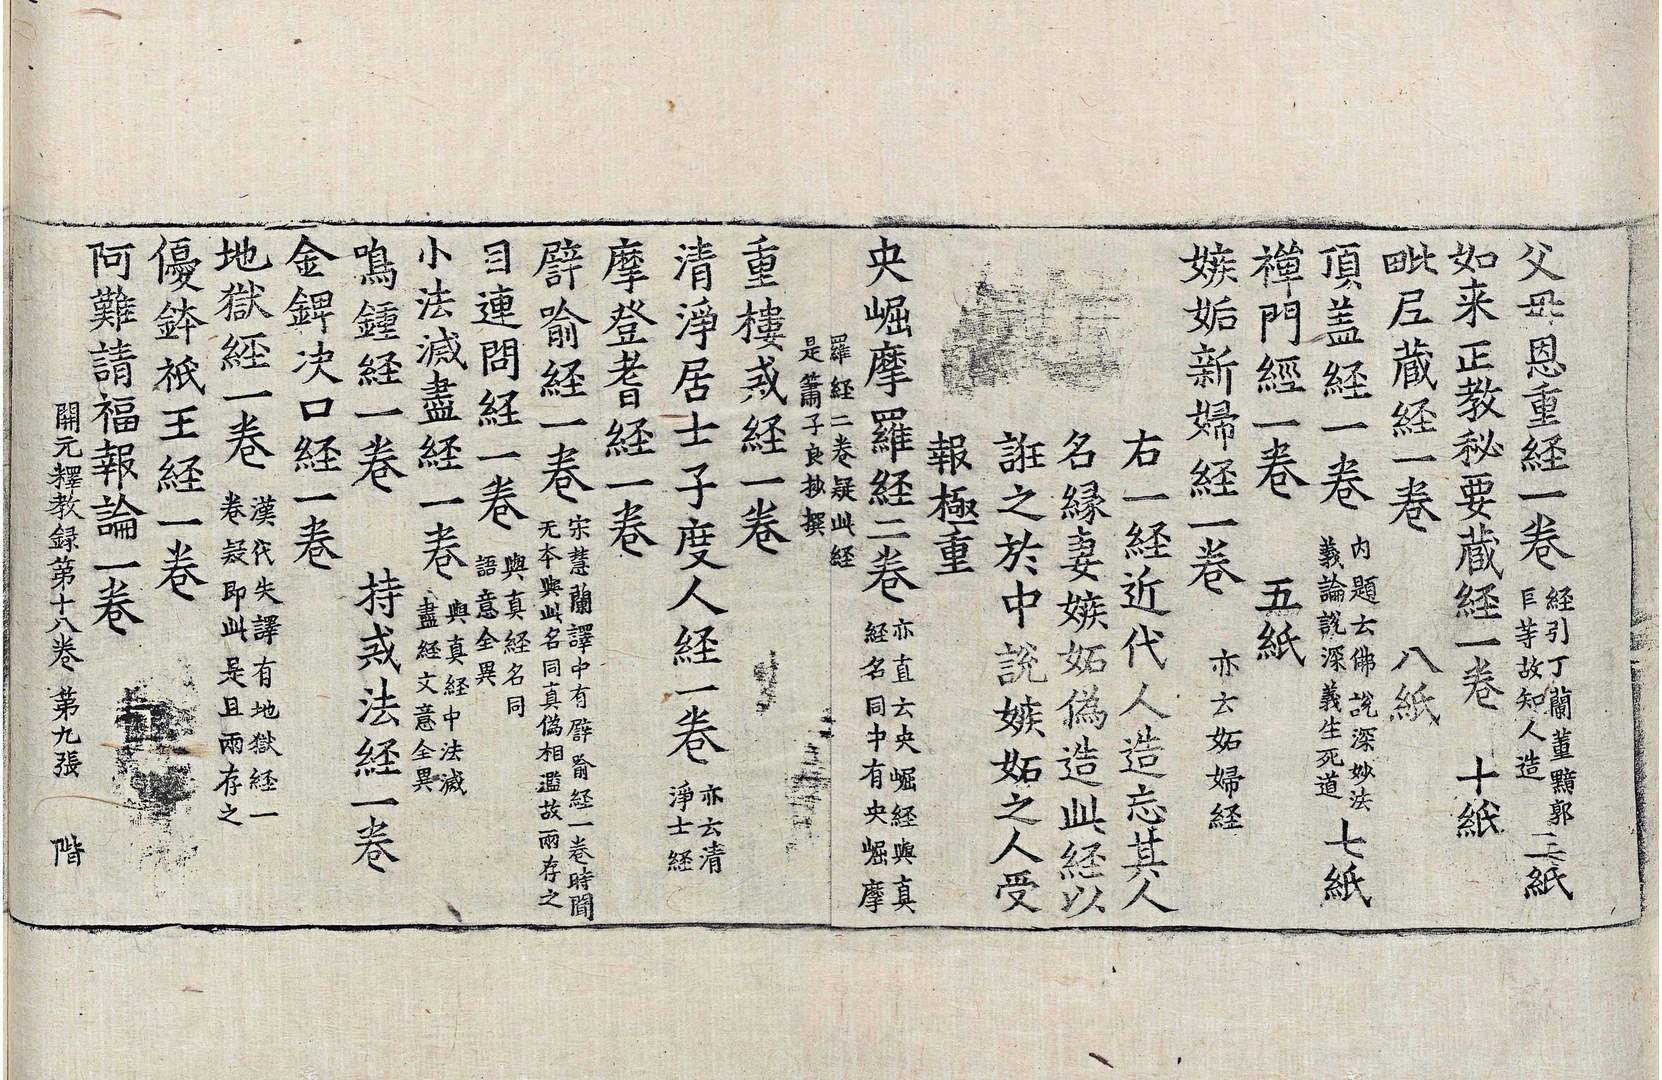 父母恩重経一卷 経引丁蘭董黯郭巨等故知人造 三紙
如来正教秘要蔵経一卷 十紙
毗尼蔵経一卷 八紙
頂盖経一卷 内題云佛說深妙法義論說深義生死道 七紙
禪門經一卷 五紙
嫉妬新婦経一卷 亦云妬婦経
右一経近代人造忘其人
名縁妻嫉妬偽造此経以
誑之於中說嫉妬之人受
報極重
央崛摩羅経二卷 亦直云央崛経與真経名同中有央崛摩
羅経二卷疑此経是簫子良抄撰
重樓戒経一卷
清淨居士子度人経一卷 亦云清淨士経
摩登耆経一卷
譬喻経一卷 宋慧蘭譯中有譬喻経一卷時聞无本與此名同真偽相濫故兩存之
目連問経一卷 與真経名同語意全異
小法滅盡経一卷 與真経中法滅盡経文意全異
鳴鍾経一卷 持戒法経一卷
金錍决口経一卷
地獄経一卷 漢代失譯有地獄経一卷疑即此是且兩存之
優鉢祇王経一卷
阿難請福報論一卷
開元釋教録第十八卷 第九張 階